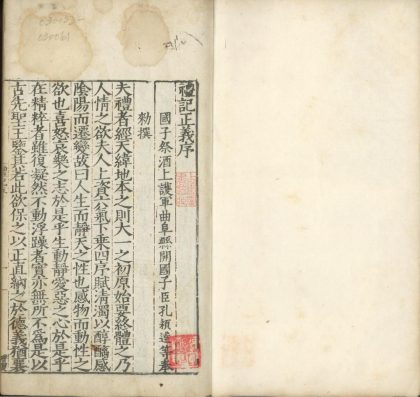 禮記正義序
國子祭酒上護軍曲阜縣開國子臣孔穎達等奉
勑撰
夫禮者經天緯地本之則大一之初原始要終體之乃
人情之欲夫人上資六氣下乗四序賦清濁以醇醨感
隂陽而遷變故曰人生而靜天之性也感物而動性之
欲也喜怒哀樂之志於是乎生動靜愛惡之心於是乎
在精粹者雖復凝然不動浮躁者實亦無所不爲是以
古先聖王鑒其若此欲保之以正直納之於德義猶襄